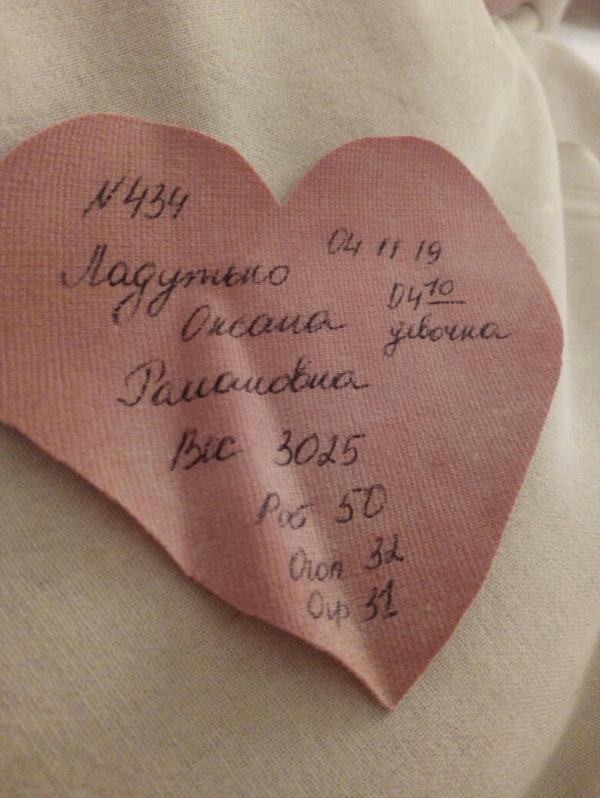 №434
04 11 19
Ладутько
04 10
Оксана
девочка
Романовна
Вес 3025
Рос 50
Огол 32
Огр 31